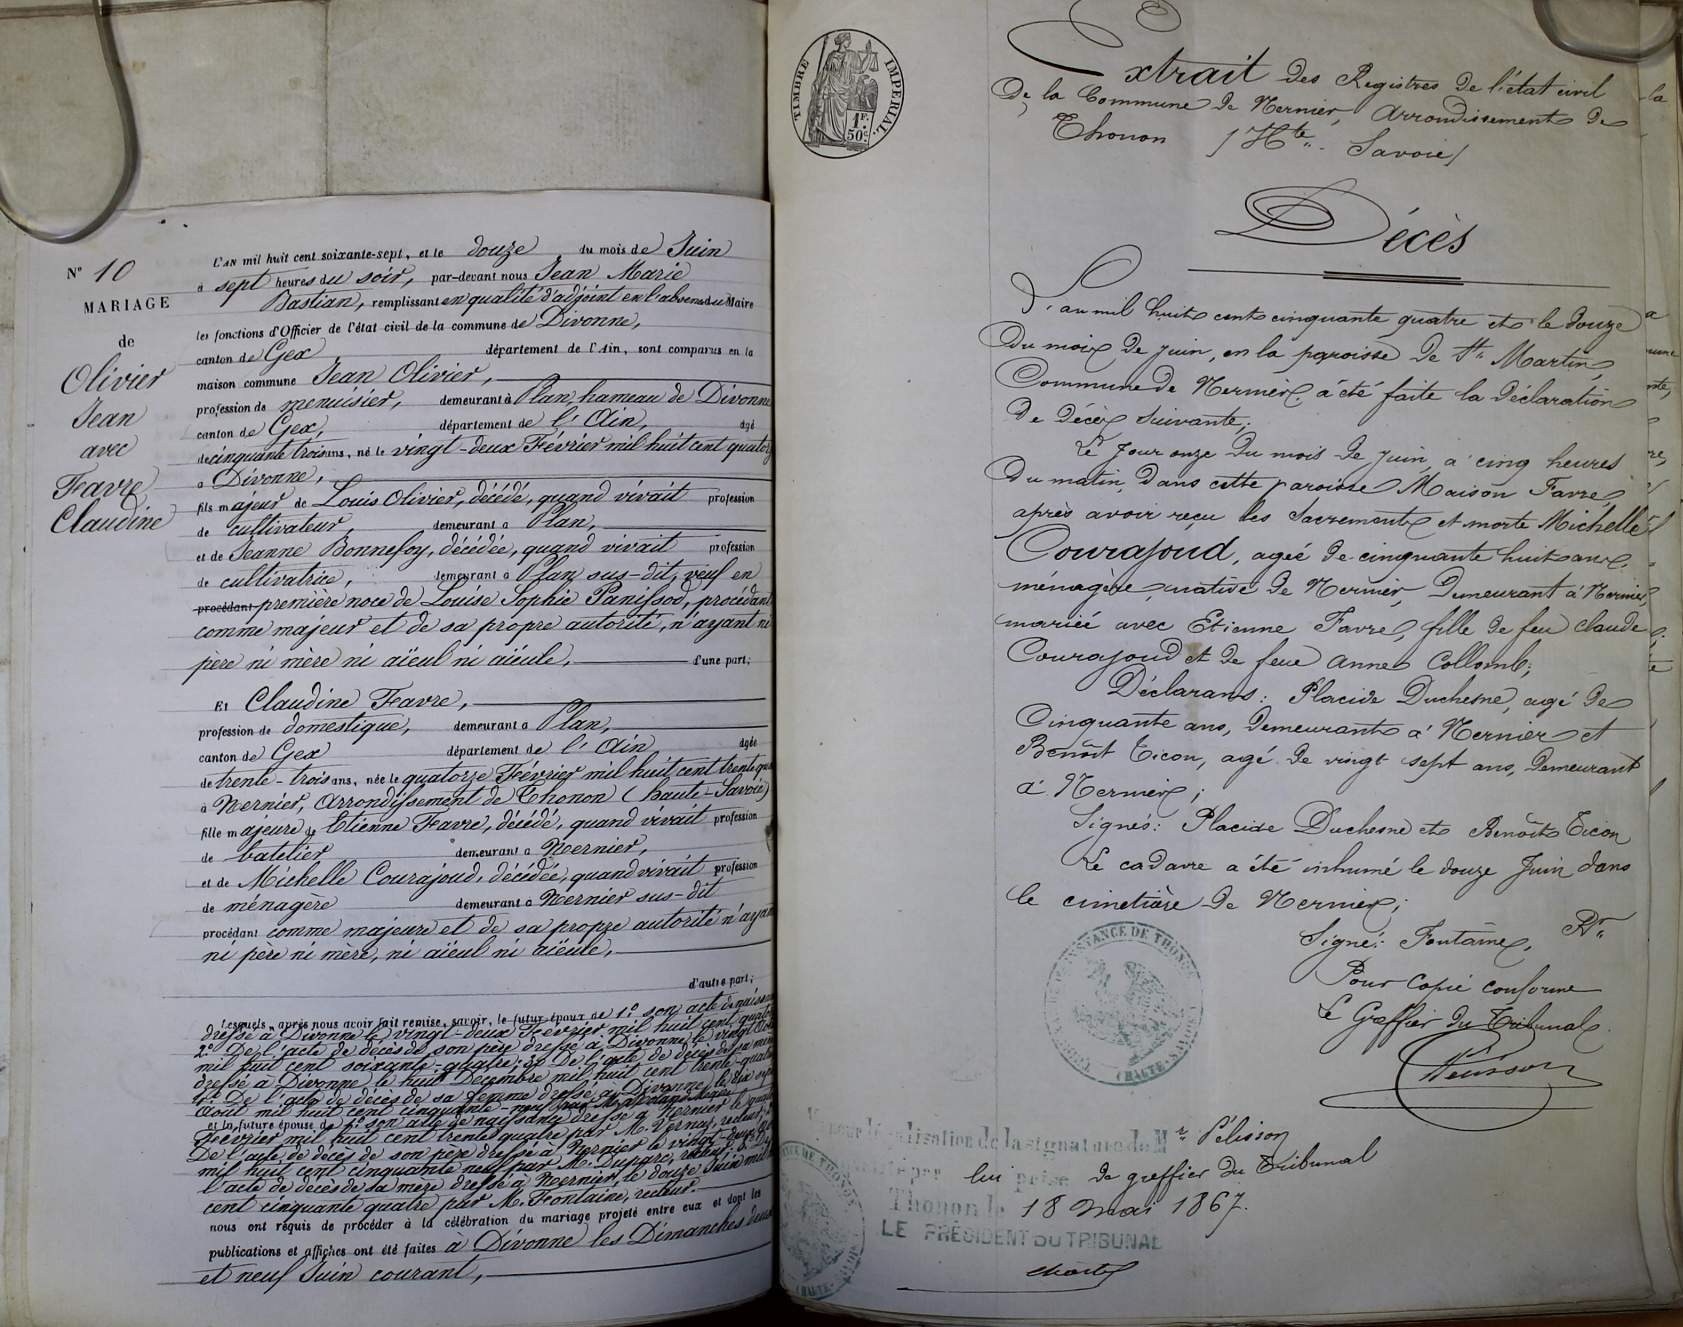 N° 10
MARIAGE
de
Olivier
Jean
avec
Favre
Claudine
L'AN mil huit cent soixante-sept, et le douze du mois de Juin
à sept heures du soir, par-devant nous Jean Marie
Bastian, remplissant en qualité d'adjoint en l'absence du Maire
les fonctions d'Officier de l'état civil de la commune de Divonne,
canton de Gex département de l'Ain, sont comparus en la
maison commune Jean Olivier,
profession de menuisier, demeurant à Plan, hameau de Divonne
canton de Gex, département de l'Ain, âgé
de cinquante trois ans, né le vingt-deux Février mil huit cent quatorz
à Divonne,
fils majeur de Louis Olivier, décédé, quand vivait profession
de cultivateur, demeurant à Plan,
et de Jeanne Bonnefoy, décédée, quand vivait profession
de cultivatrice, demeurant à Plan sus-dit, veuf en
procédant première noce de Louise Sophie Panissod, procédant
comme majeur et de sa propre autorité, n'ayant ni
père ni mère ni aïeul ni aïeule, d'une part;
Et Claudine Favre,
profession de domestique, demeurant à Plan,
canton de Gex département de l'Ain, âgée
de trente-trois ans, née le quatorze Février mil huit cent trente qua
à Nernier, Arrondissement de Thonon (haute-Savoie)
fille majeure de Etienne Favre, décédé, quand vivait profession
de batelier, demeurant à Nernier,
et de Michelle Courajoud, décédée, quand vivait profession
de ménagère demeurant à Nernier sus-dit
procédant comme majeure et de sa propre autorité n'ayan
ni père ni mère, ni aïeul ni aïeule,
d'autre part;
Lesquels, après nous avoir fait remise, savoir, le futur époux de 1° son acte de naissan
dressé à Divonne le vingt-deux Février mil huit cent quato
2° De l'acte de décès de son père dressé à Divonne le vingt Oct
mil huit cent soixante-quatre; 3° De l'acte de décès de sa mère
dressé à Divonne le huit Décembre mil huit cent trente-quat
4° De l'acte de décès de sa femme dressé à Divonne le dix sept
Août mil huit cent cinquante-neuf
et la future épouse de 1° son acte de naissance dressé à Nernier le quat
Février mil huit cent trente quatre par M. Vernay, recteur; 2°
De l'acte de décès de son père dressé à Nernier le vingt-deux
mil huit cent cinquante neuf par M. Duparc, recteur; 3° De
l'acte de décès de sa mère dressé à Nernier, le douze Juin mil h
cent cinquante quatre par M. Fontaine, recteur.
nous ont requis de procéder à la célébration du mariage projeté entre eux et dont les
publications et affiches ont été faites à Divonne les Dimanches deux
et neuf Juin courant,
TIMBRE IMPERIAL.
1F.
50c.
Extrait des Registres de l'état civil
De la Commune de Nernier, Arrondissement de
Thonon /Hte. Savoie/
Décès
L'an mil huit cent cinquante quatre et le douze
du mois de juin, en la paroisse de St. Martin,
Commune de Nernier, a été faite la déclaration
de décès suivante;
Le jour onze du mois de juin, à cinq heures
du matin, dans cette paroisse Maison Favre,
après avoir reçu les sacrements est morte Michelle
Courajoud, agée de cinquante huit ans,
ménagère, native de Nernier, Demeurant à Nernier,
mariée avec Etienne Favre, fille de feu Claude
Courajoud et de feue Anne Collomb;
Déclarans: Placide Duchesne, agé de
Cinquante ans, Demeurant à Nernier et
Benoît Ticon, agé de vingt sept ans, Demeurant
à Nernier;
Signés: Placide Duchesne et Benoît Ticon
Le cadavre a été inhumé le douze Juin dans
le cimetière de Nernier;
Signé: Fontaine, Rr.
Pour copie conforme
Le Greffier du Tribunal
Pélisson
pour légalisation de la signature de Mr. Pélisson
lui prise de greffier du Tribunal
Thonon le 18 mai 1867.
LE PRÉSIDENT DU TRIBUNAL